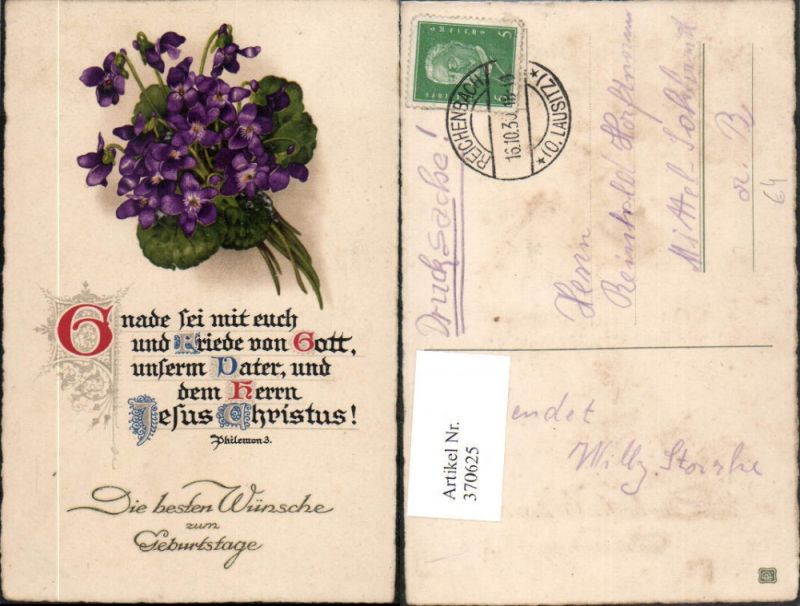 Gnade sei mit euch
und Friede von Gott,
unserm Vater, und
dem Herrn
Jesus Christus!
Philemon 3.
Die besten Wünsche
zum
Geburtstage
5 5
REICHENBACH
16.10.30
* (O. LAUSITZ) *
Drucksache!
Herrn
Reinhold
Mittel-Sohland
a. R
64
Artikel Nr.
370625
endet
Willy